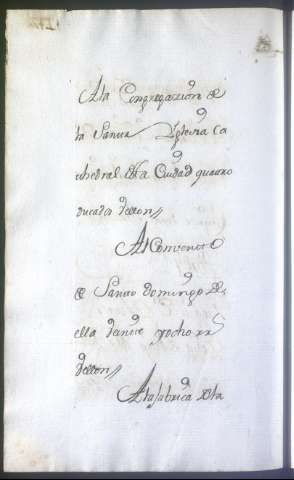 Ala Congregazion de
la Santa Yglesia Ca
thedral desta Ciudad quatro
ducados de
Al Convento
de Santo domingo de
ella veinte y ocho rrs
de
Ala fabrica dela